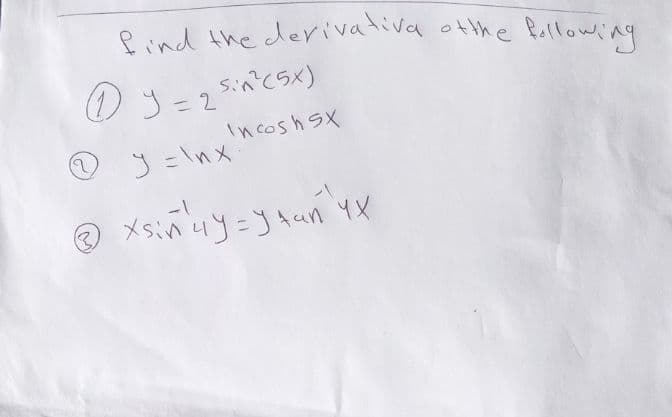 find the derivativa otthe following
① y = 2^sin²(5x)
② y = lnx^lncosh5x
③ xsin⁻¹4y = y tan⁻¹4x